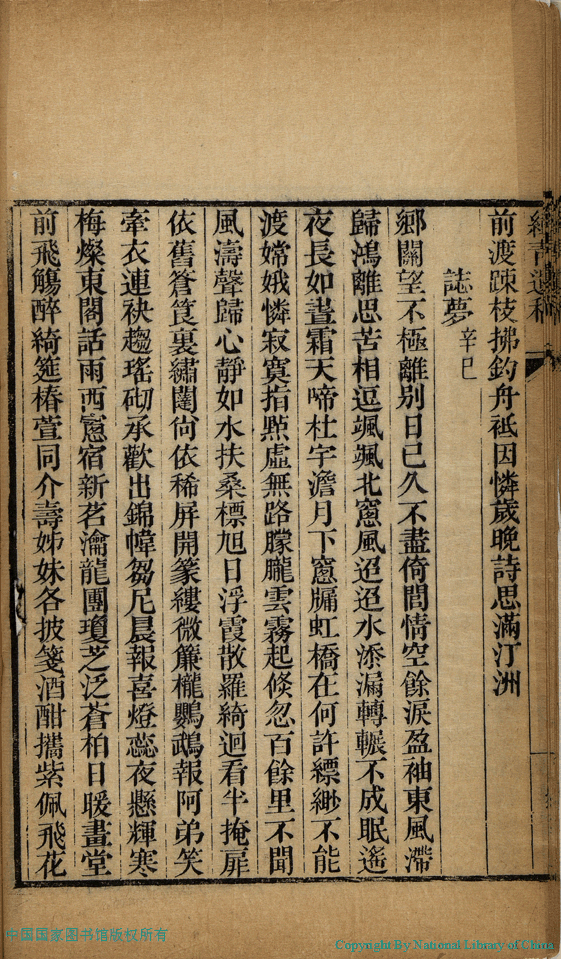 前渡疎枝拂釣舟祗因憐歲晚詩思滿汀洲
誌夢辛巳
鄉關望不極離別日已久不盡倚閭情空餘淚盈袖東風滯
歸鴻離思苦相逗颯颯北窻風迢迢水添漏轉輾不成眠遙
夜長如晝霜天啼杜宇澹月下窻牖虹橋在何許縹緲不能
渡嫦娥憐寂寞指㸃虛無路朦朧雲霧起倐忽百餘里不聞
風濤聲歸心靜如水扶桑標旭日浮霞散羅綺迴看半掩扉
依舊蒼筤裏繡闥尙依稀屏開篆縷微簾櫳鸚鵡報阿弟笑
牽衣連袂趨瑤砌承歡出錦幃芻尼晨報喜燈蕊夜懸輝寒
梅燦東閣話雨西窻宿新茗瀹龍團瓊芝泛蒼柏日暖畫堂
前飛觴醉綺筵椿萱同介壽姊妹各披箋酒酣攜紫佩飛花
中国国家图书馆版权所有
Copyright By National Library of China